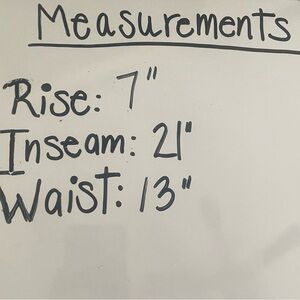 Measurements
Rise: 7"
Inseam: 21"
Waist: 13"